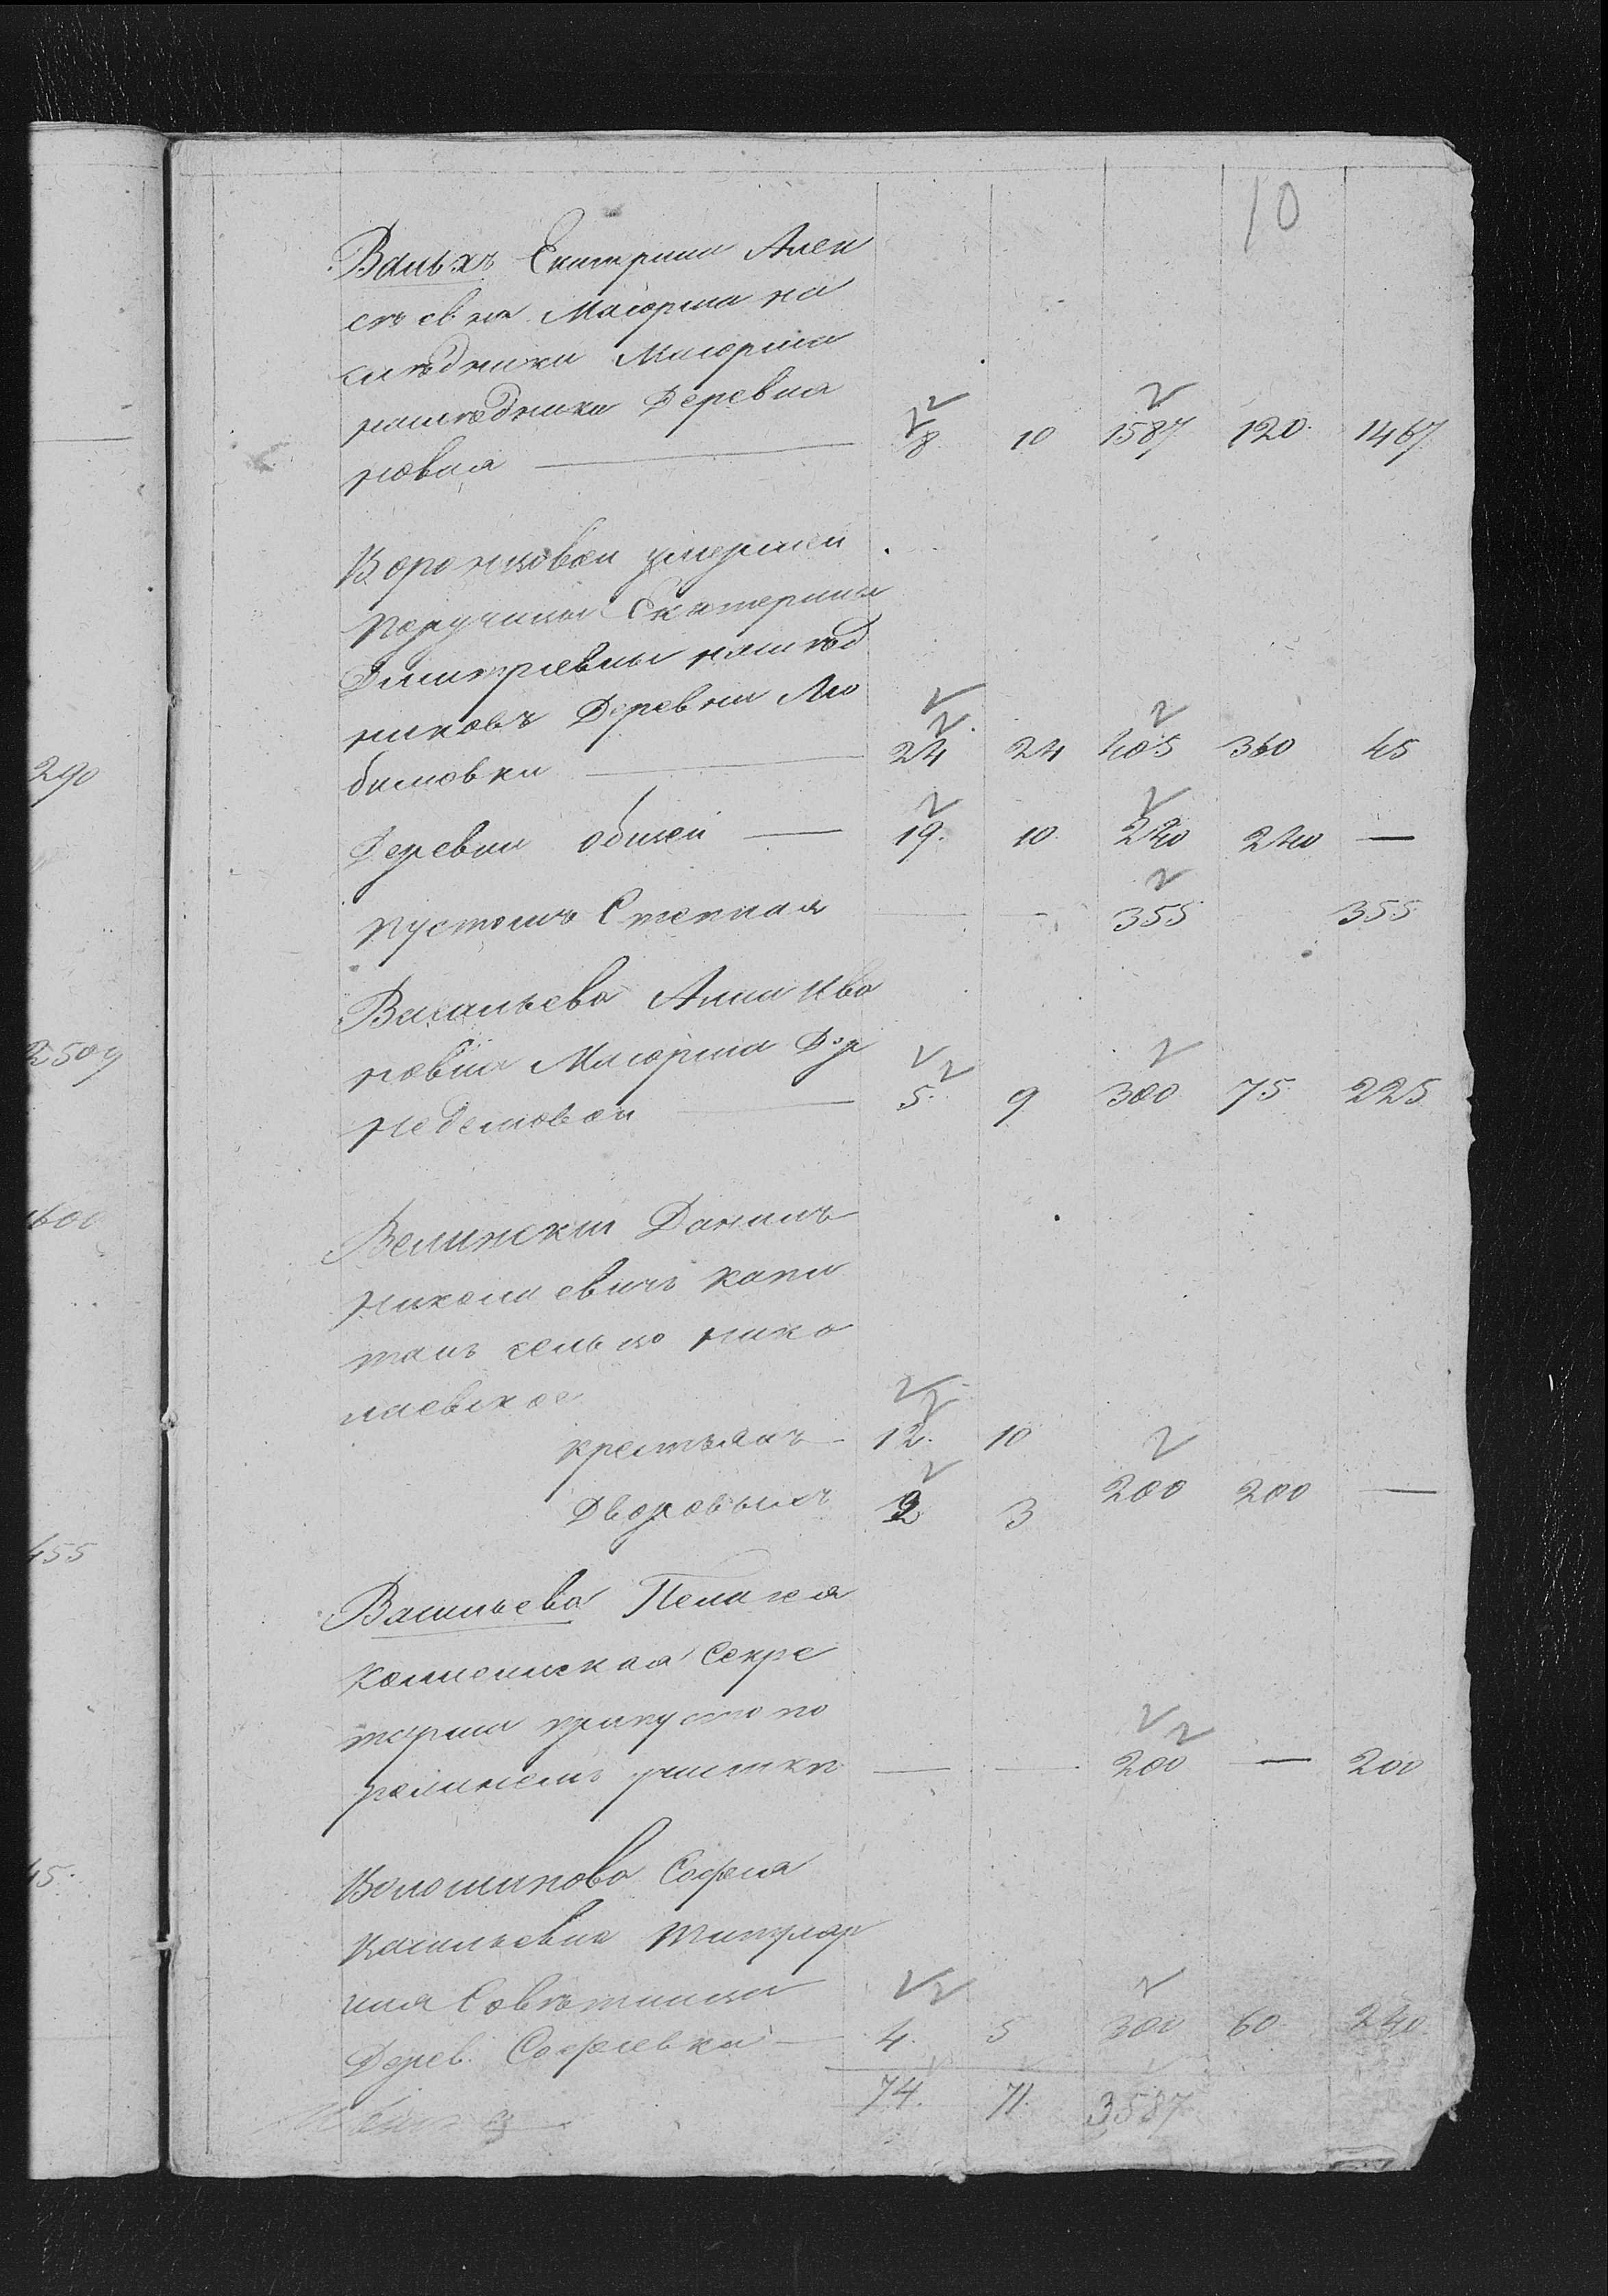 10
Вальхъ Екатерина Алек
сѣевна Маіорша на
слѣдники Маіорши
наслѣдники Деревня
новая — 8 10 1587 120 1467
Воронцовой умершей
Поручицы Екатерины
Дмитріевны наслѣд
никовъ Деревни Лю
бимовки — 24 24 405 360 45
Деревни общей — 19. 10. 240 240 —
пустошь Степная — - 355 355
Васильева Анна Ива
новна Маіорша Дер
— 5. 9 300 75 225
Велинскій Данилъ
Николаевичъ Капи
танъ сельцо Нико
лаевское
крестьянъ — 12. 10
Дворовыхъ 2 3 200 200 —
Васильева Пелагея
Коллежская Секре
тарша
участкѣ — — 200 — 200
Волошинова Софья
Васильевна Титуляр
ная Совѣтница
Дерев. Софіевка — 4. 5 300 60 240
74. 71. 3587
290
2509
1600
455
45.